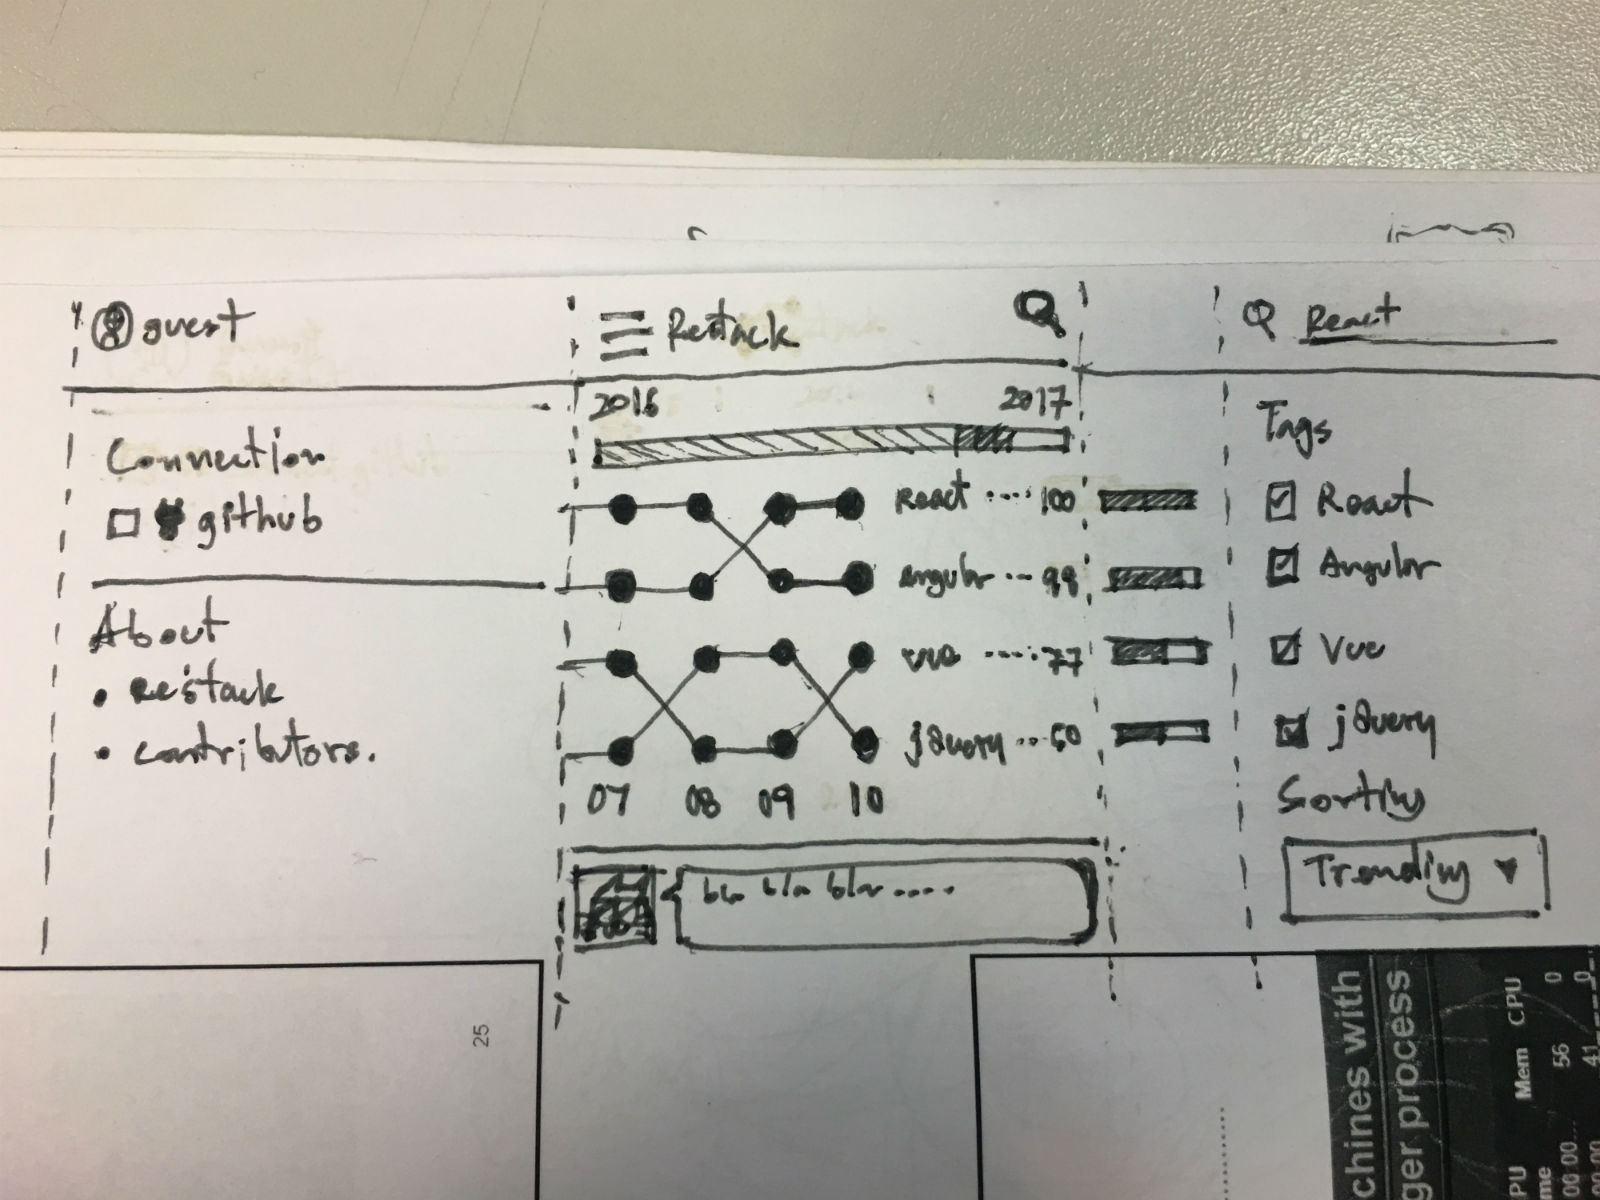 guest
Connection
github
About
• Restack
• contributors.
Restack
2016 2017
React .... 100
Angular ... 98
vue ..... 77
jQuery .. 50
07 08 09 10
bla bla bla ....
React
Tags
React
Angular
Vue
jQuery
Sorting
Trending
25
chines with
ger process
Mem CPU
56 0
41 0